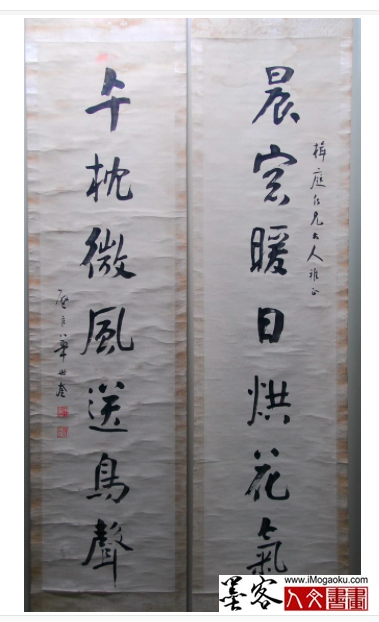 晨窓暖日烘花氣
庭仁兄大人雅正
午枕微風送鳥聲
華世奎
墨客
www.iMogaoku.com
人文書畫